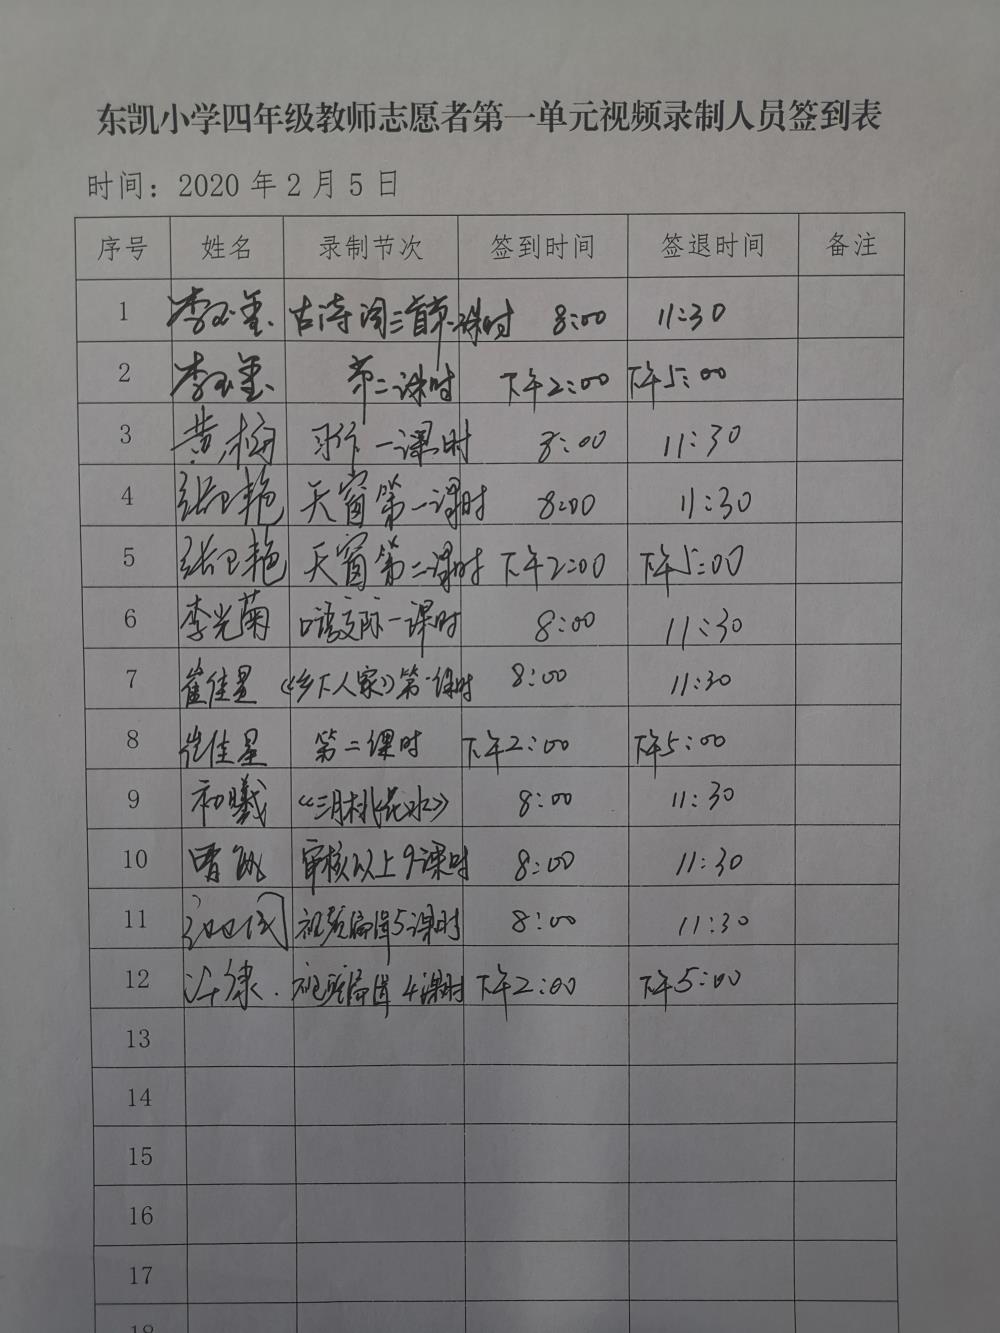 东凯小学四年级教师志愿者第一单元视频录制人员签到表
时间：2020年2月5日
序号 姓名 录制节次 签到时间 签退时间 备注
1 李玉玺 古诗词三首第一课时 8:00 11:30
2 李玉玺 第二课时 下午2:00 下午5:00
3 黄梅 习作一课时 8:00 11:30
4 张卫艳 天窗第一课时 8:00 11:30
5 张卫艳 天窗第二课时 下午2:00 下午5:00
6 李光菊 口语交际一课时 8:00 11:30
7 崔佳星 《乡下人家》第一课时 8:00 11:30
8 崔佳星 第二课时 下午2:00 下午5:00
9 初曦 《三月桃花水》 8:00 11:30
10 审核以上9课时 8:00 11:30
11 视频编辑5课时 8:00 11:30
12 视频编辑4课时 下午2:00 下午5:00
13
14
15
16
17
18